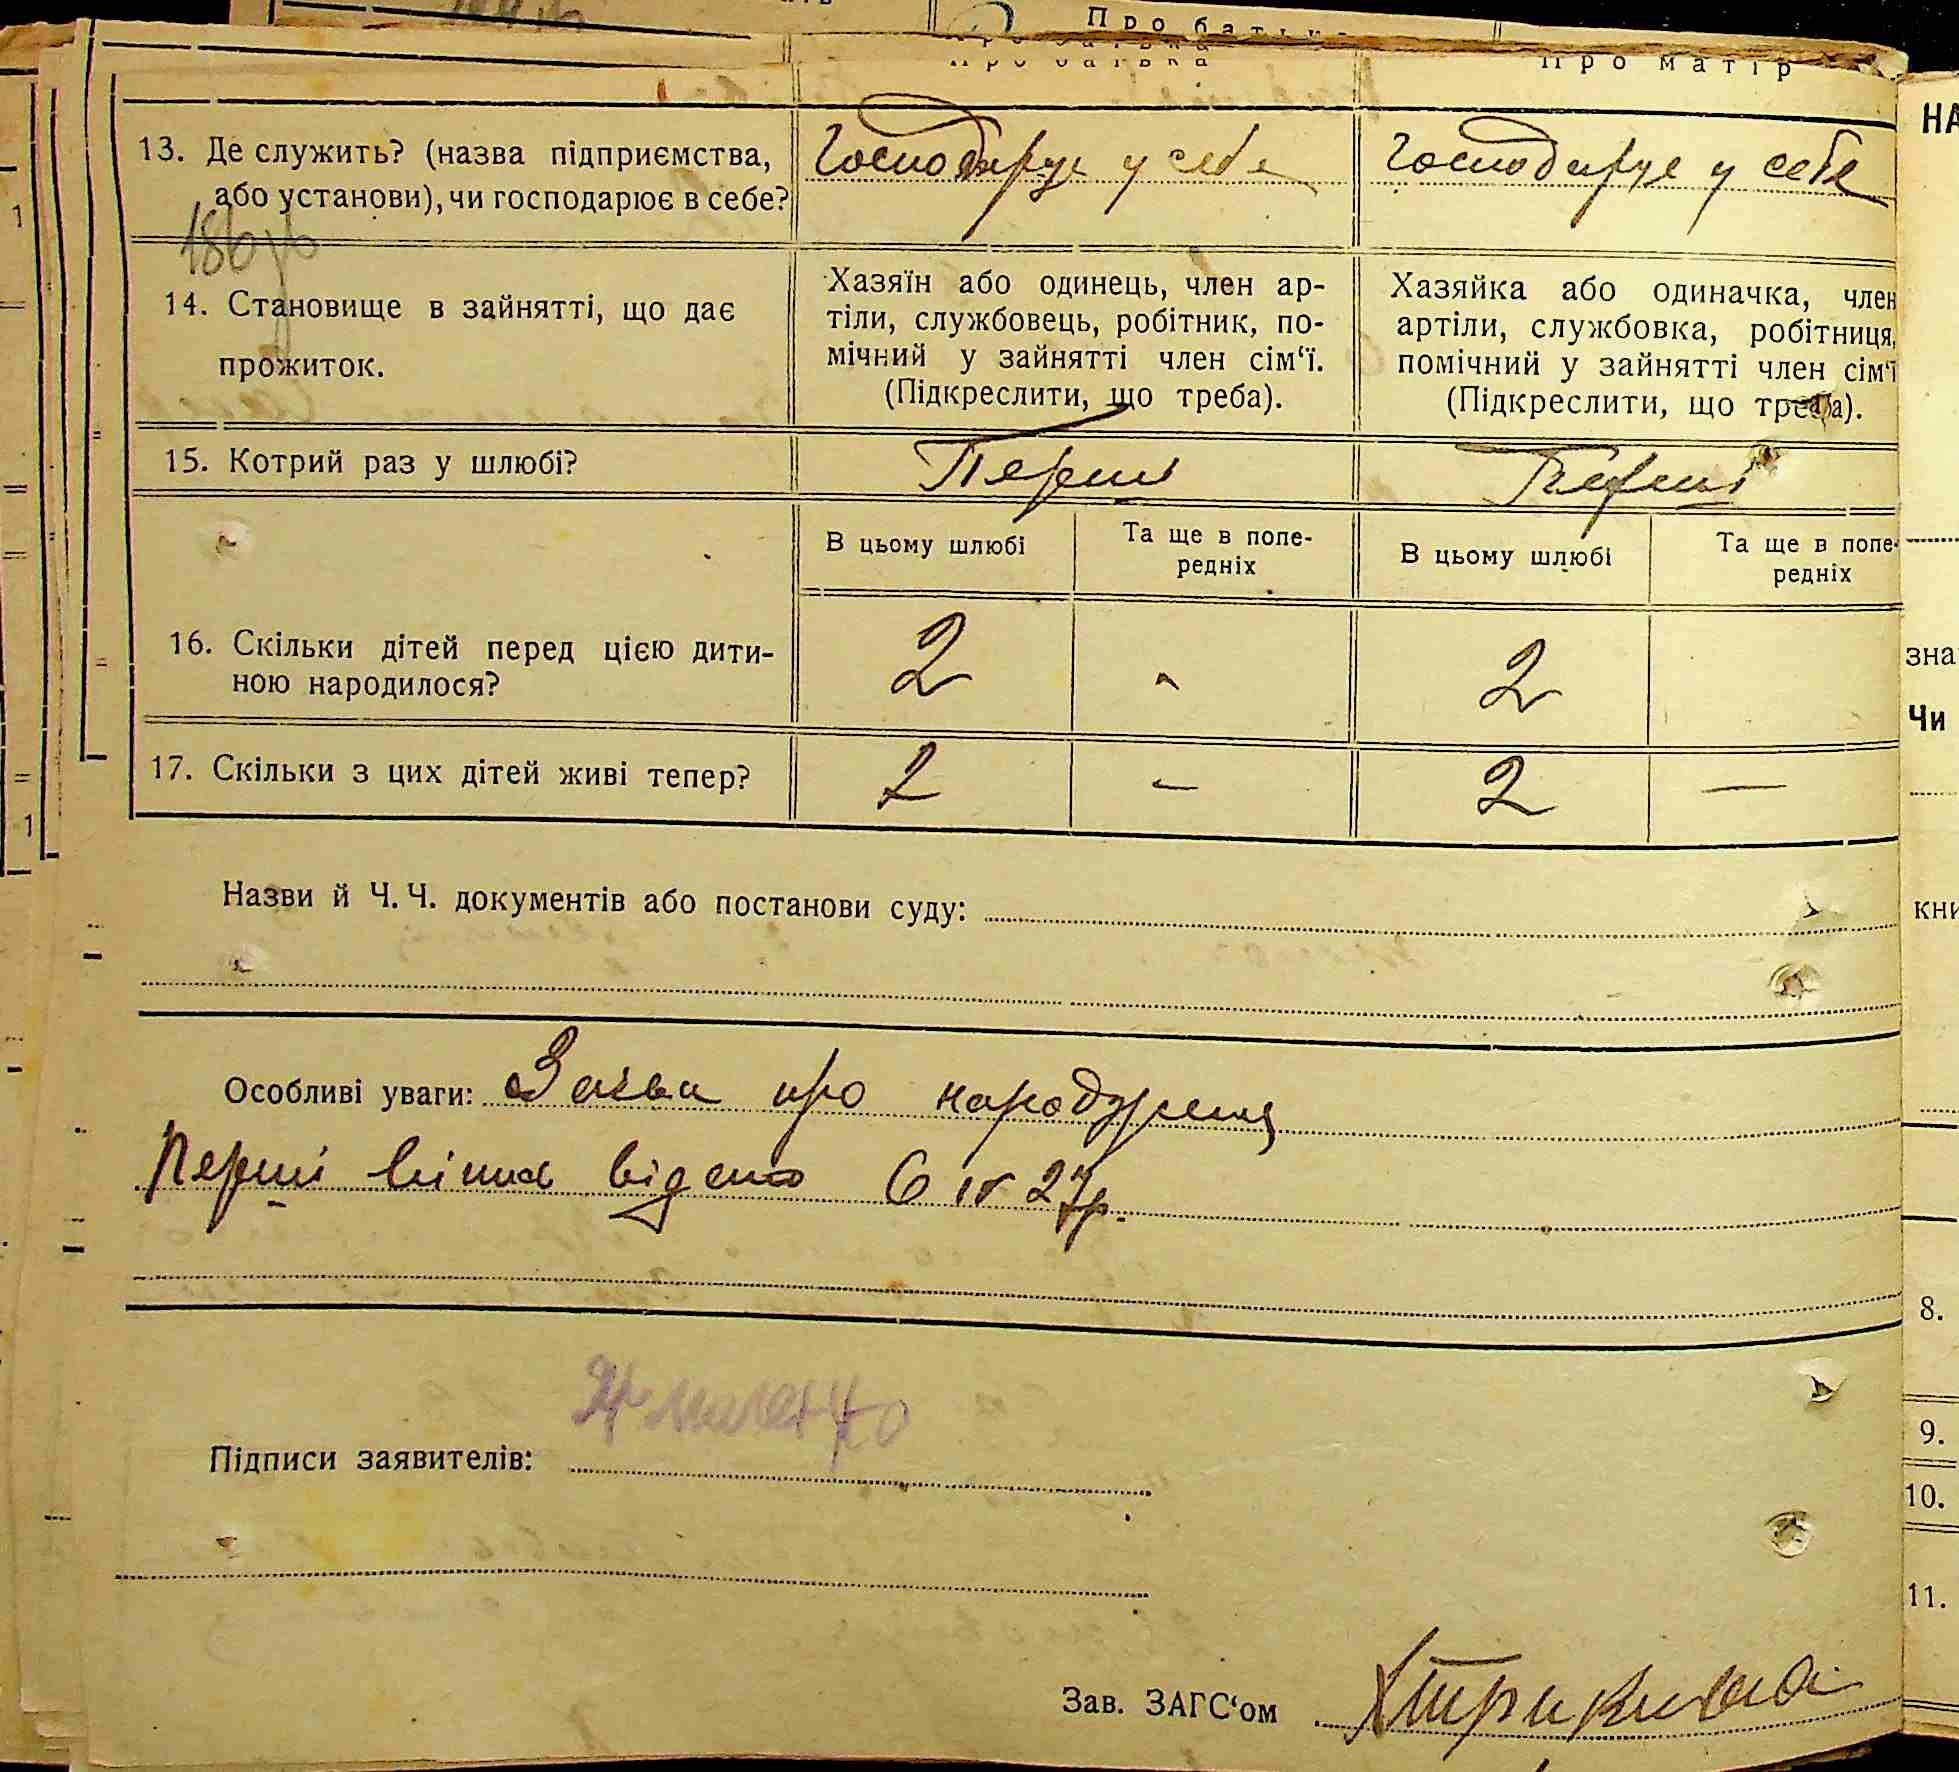 Про батька
Про батька Про матір
13. Де служить? (назва підприємства, або установи), чи господарює в себе? Господарує у себе Господарує у себе
14. Становище в зайнятті, що дає
прожиток.
Хазяїн або одинець, член ар-
тіли, службовець, робітник, по-
мічний у зайнятті член сім‘ї.
(Підкреслити, що треба).
Хазяйка або одиначка, член
артіли, службовка, робітниця,
помічний у зайнятті член сім‘ї
(Підкреслити, що треба).
15. Котрий раз у шлюбі? Перший Перший
В цьому шлюбі Та ще в попе-
редніх В цьому шлюбі Та ще в попе-
редніх
16. Скільки дітей перед цією дити-
ною народилося? 2 - 2
17. Скільки з цих дітей живі тепер? 2 — 2 —
Назви й Ч. Ч. документів або постанови суду:
Особливі уваги: Заява про народження
Перший випис відано 6 IV 27р.
Підписи заявителів:
Зав. ЗАГС‘ом
НА
зна
Чи
кни
8.
9.
10.
11.